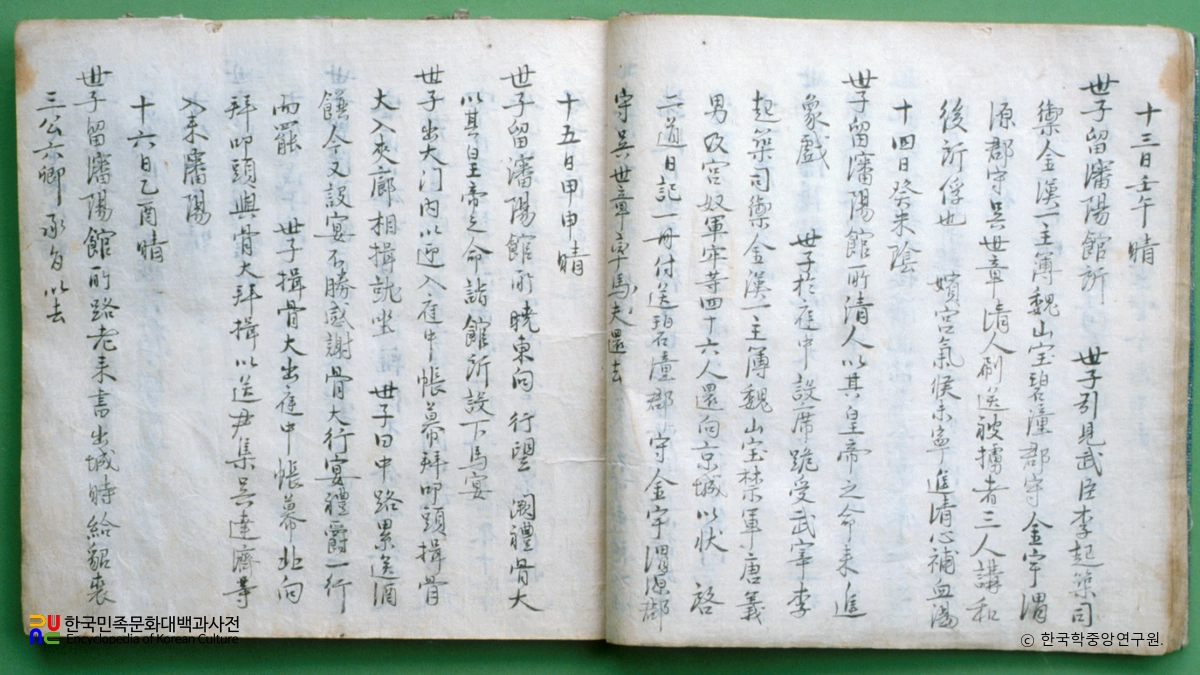 十三日壬午晴
世子留瀋陽館所 世子引見武臣李起築司
禦金漢一主簿魏山宝碧潼郡守金宇渭
源郡守吳世章清人刷送被擄者三人講和
後所俘也 嬪宮氣候未寧進清心補血湯
十四日癸未陰
世子留瀋陽館所清人以其皇帝之命来進
象戲 世子於庭中設席跪受武宰李
起築司禦金漢一主簿魏山宝禁軍唐義
男及宮奴軍牢等四十六人還向京城以狀 啓
二道日記一冊付送碧潼郡守金宇渭源郡
守吳世章率馬夫還去
十五日甲申晴
世子留瀋陽館所曉東向 行望 闕禮骨大
以其皇帝之命詣館所設下馬宴
世子出大门內以迎入庭中帳幕拜叩頭揖骨
大入夾廊相揖就坐 世子曰中路累送酒
饌今又設宴不勝感謝骨大行宴禮爵一行
而罷 世子揖骨大出庭中帳幕北向
拜叩頭與骨大拜揖以送尹集吳達濟等
入来瀋陽
十六日乙酉晴
世子留瀋陽館所路老来言出城時給貂裘
三公六卿承旨以去
한국민족문화대백과사전
Encyclopedia of Korean Culture
ⓒ 한국학중앙연구원.